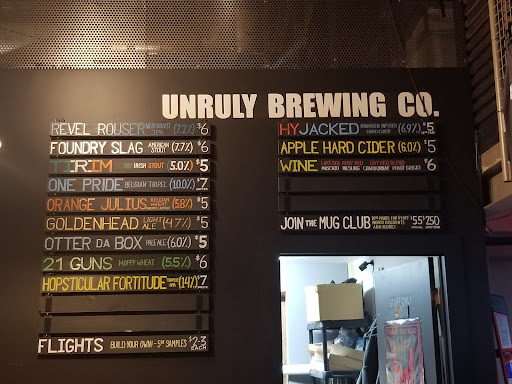 UNRULY BREWING CO.
REVEL ROUSER WEST COAST IPA (7.2%) $6
FOUNDRY SLAG AMERICAN STOUT (7.7%) $6
TIRIM DRY IRISH STOUT 5.0% $5
ONE PRIDE BELGIAN TRIPEL (10.0%) $7
ORANGE JULIUS BELGIAN WHEAT (5.8%) $5
GOLDENHEAD LIGHT ALE (4.7%) $5
OTTER DA BOX PALE ALE (6.0%) $5
21 GUNS HOPPY WHEAT (5.5%) $6
HOPSTICULAR FORTITUDE IPA $7
FLIGHTS BUILD YOUR OWN! - 5oz SAMPLES $2-3 EACH
HYJACKED HARD CIDER (6.9%) $5
APPLE HARD CIDER (6.0%) $5
WINE RIESLING CHARDONNAY PINOT GRIGIO $6
JOIN THE MUG CLUB $55 $250